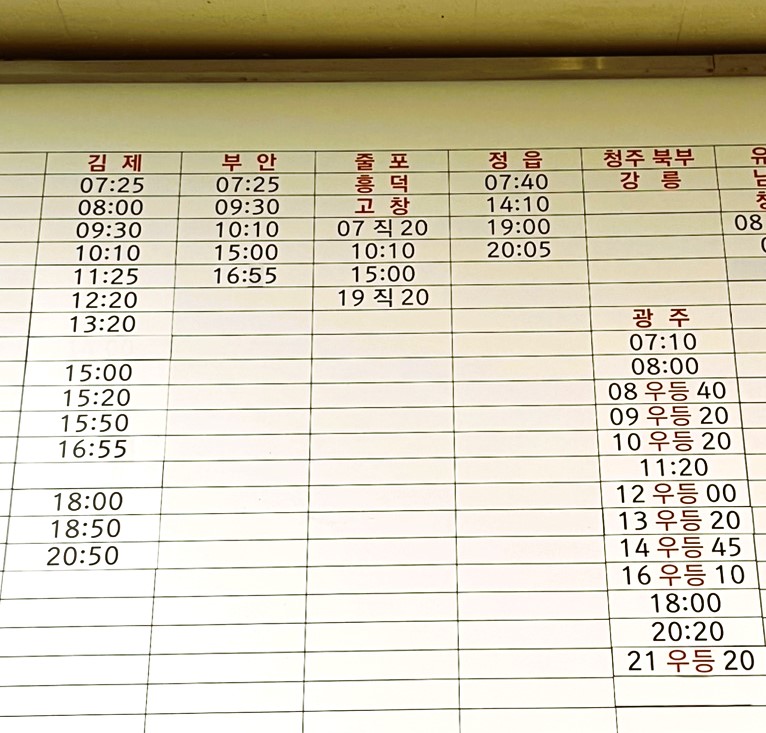 김 제 부 안 줄 포 정 읍 청주 북부 유
07:25 07:25 흥 덕 07:40 강 릉
08:00 09:30 고 창 14:10
09:30 10:10 07 직 20 19:00 08
10:10 15:00 10:10 20:05
11:25 16:55 15:00
12:20 19 직 20
13:20 광 주
07:10
15:00 08:00
15:20 08 우등 40
15:50 09 우등 20
16:55 10 우등 20
11:20
18:00 12 우등 00
18:50 13 우등 20
20:50 14 우등 45
16 우등 10
18:00
20:20
21 우등 20